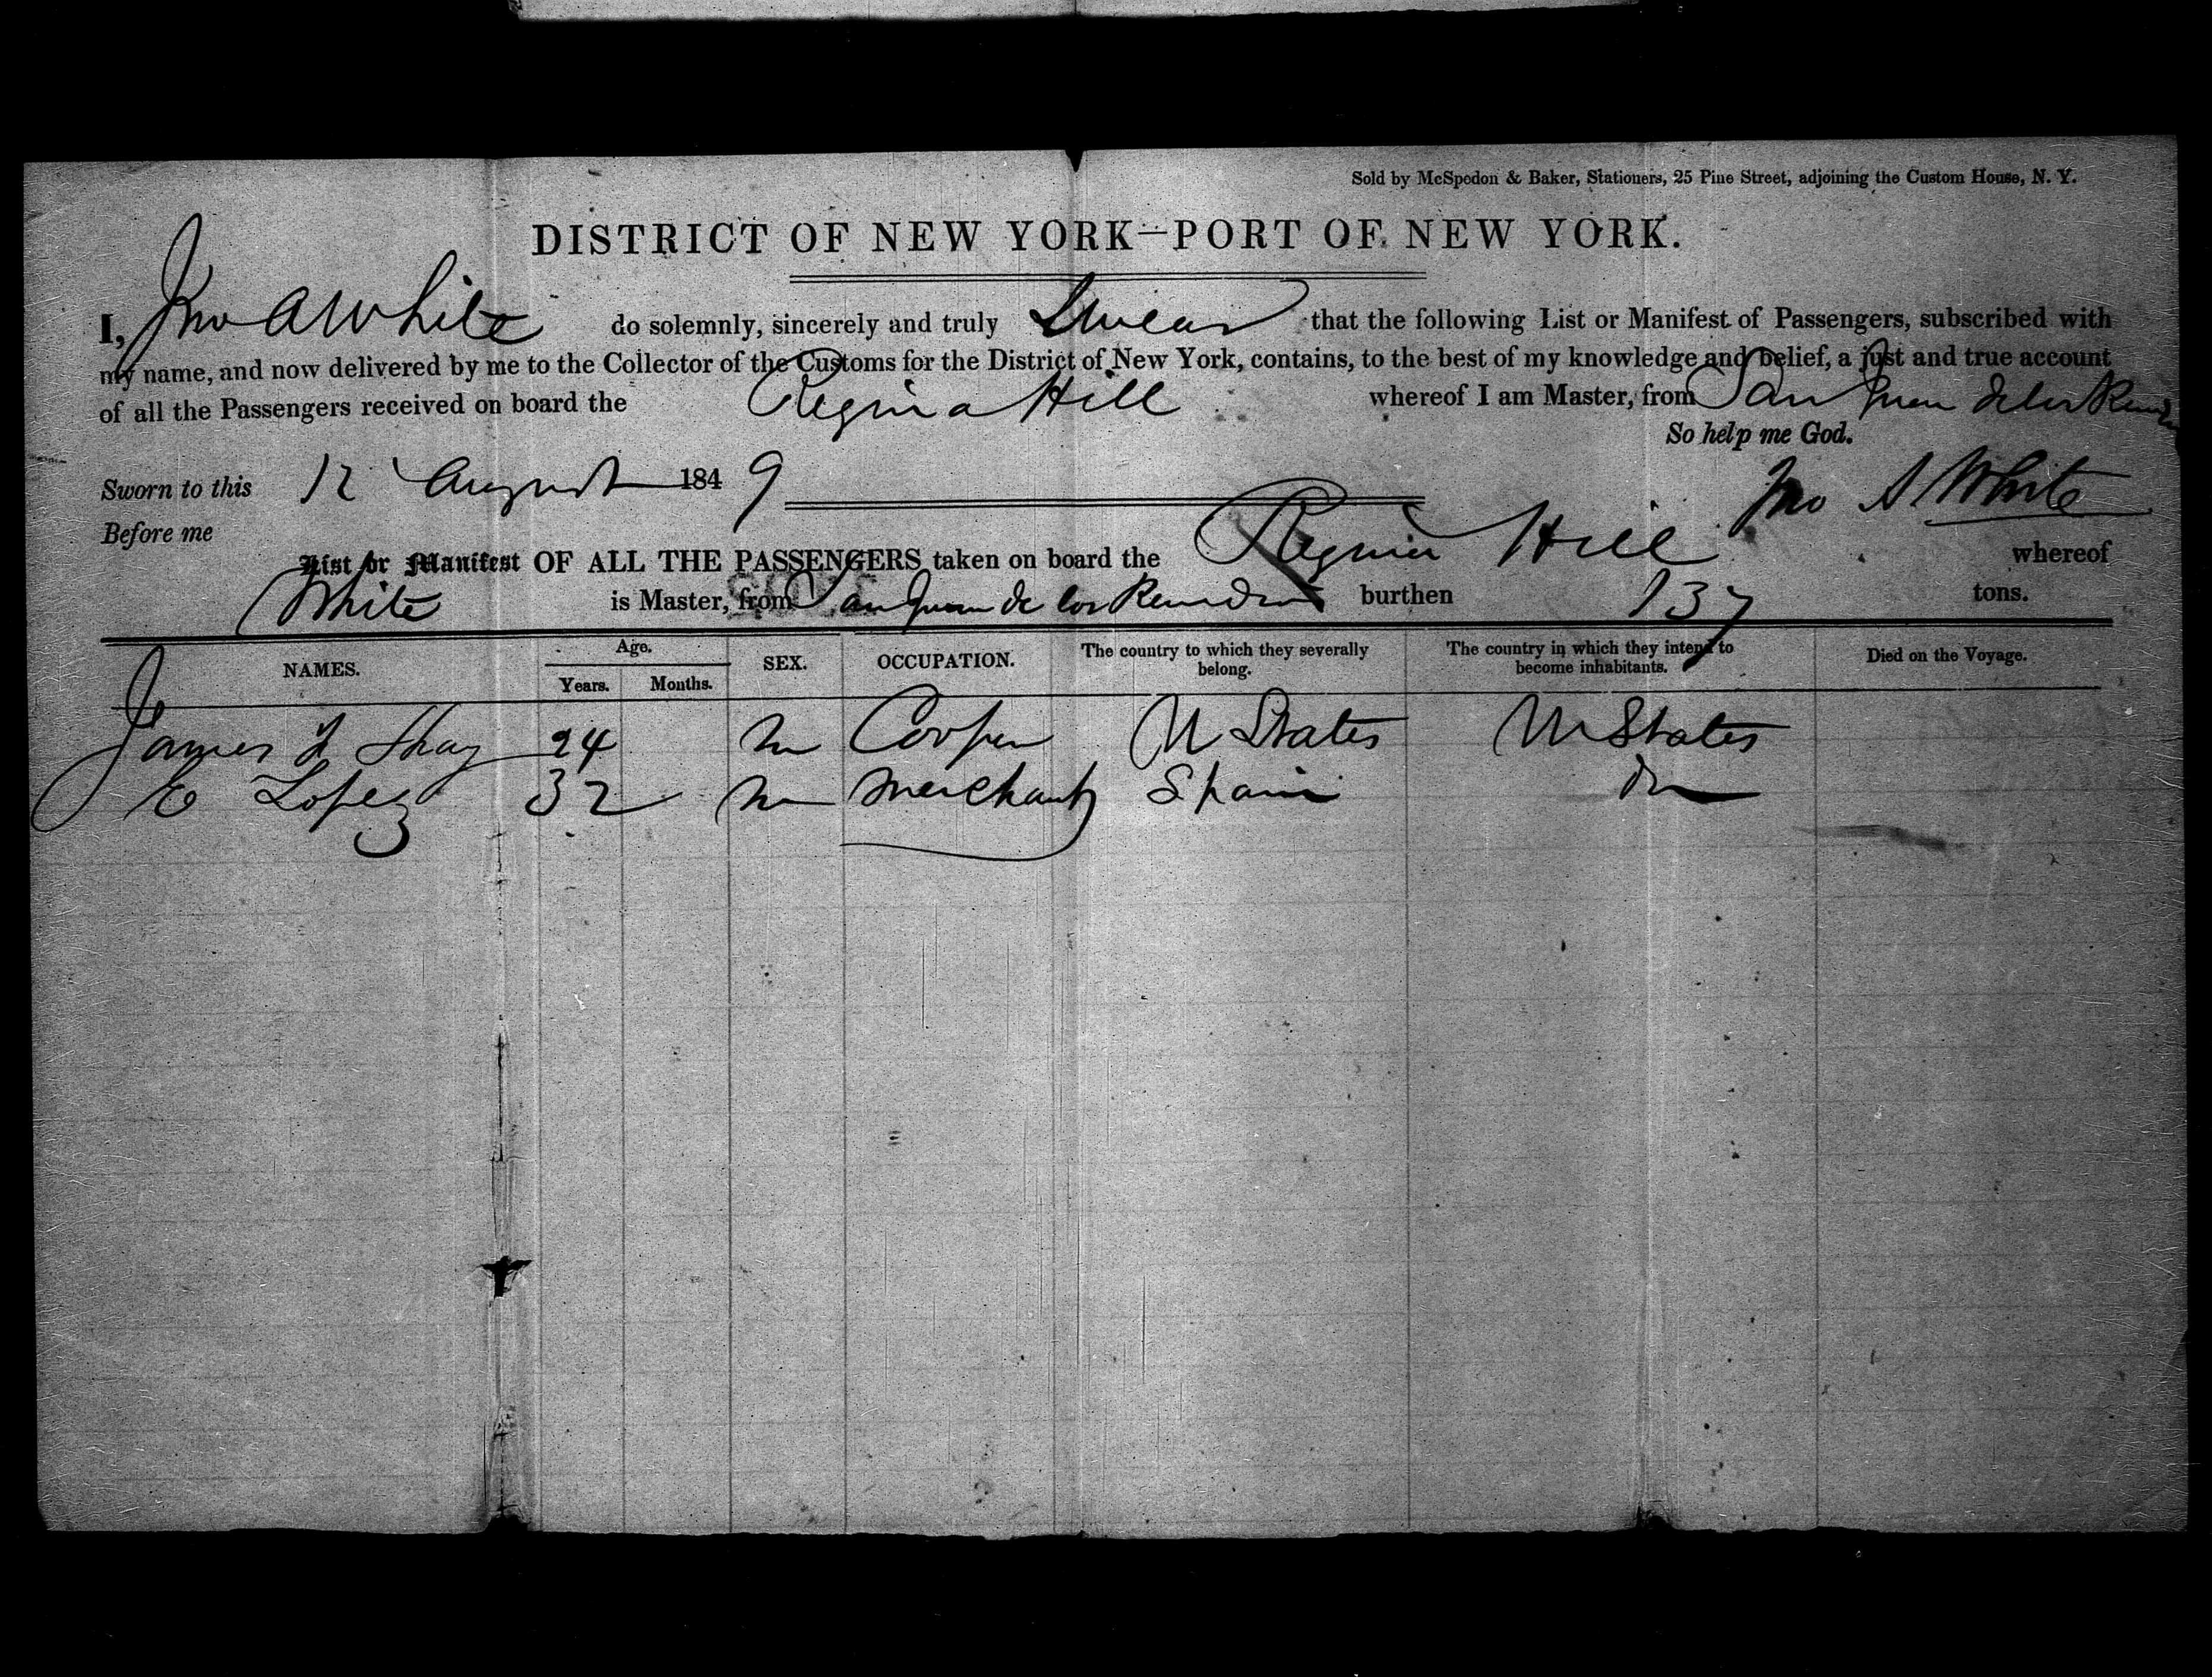 Sold by McSpedon & Baker, Stationers, 25 Pine Street, adjoining the Custom House, N. Y.
DISTRICT OF NEW YORK—PORT OF NEW YORK.
I, Jno A White do solemnly, sincerely and truly Swear that the following List or Manifest of Passengers, subscribed with
my name, and now delivered by me to the Collector of the Customs for the District of New York, contains, to the best of my knowledge and belief, a just and true account
of all the Passengers received on board the Regina Hill whereof I am Master, from San Juan de los Remedios
So help me God.
Sworn to this 12 August 1849 Jno A White
Before me
List or Manifest OF ALL THE PASSENGERS taken on board the Regina Hill whereof
White is Master, from San Juan de los Remedios burthen 137 tons.
NAMES. Age. Years. Months. SEX. OCCUPATION. The country to which they severally belong. The country in which they intend to become inhabitants. Died on the Voyage.
James Shay 24 m Cooper U States U States
E Lopez 32 m Merchant Spain Do